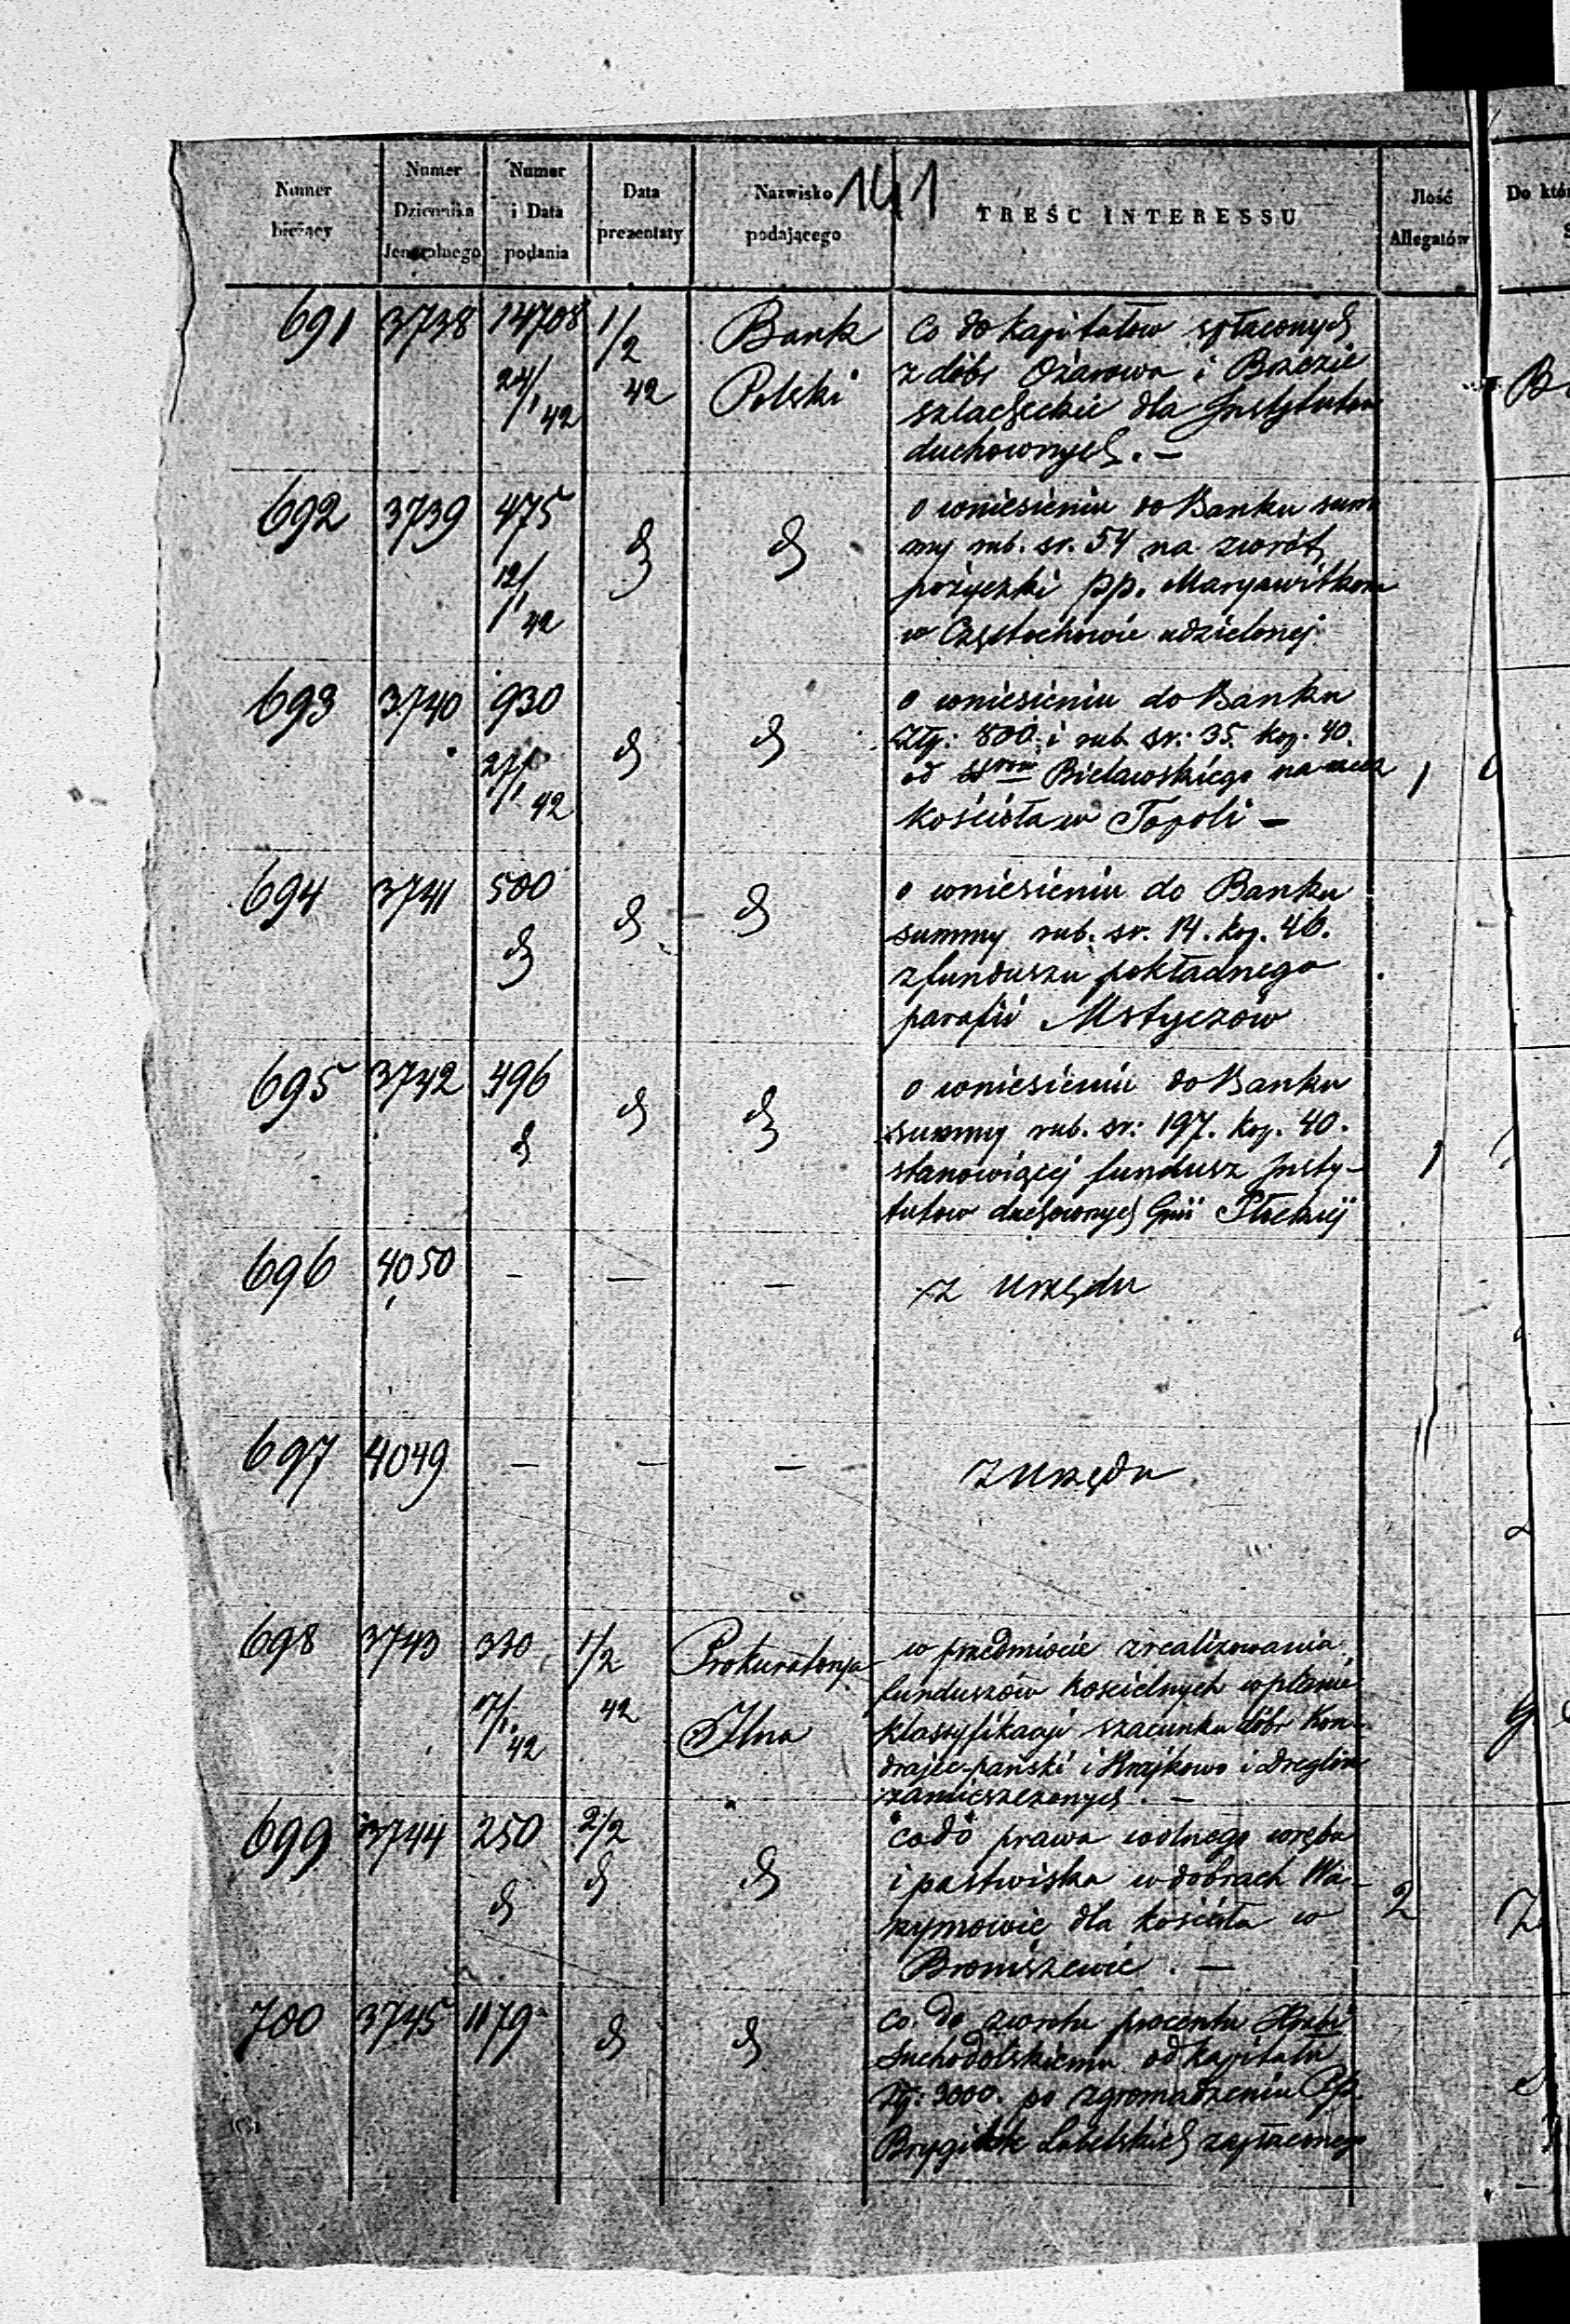 141
Numer bieżący
Numer Dziennika Jeneralnego
Numer i Data podania
Data prezentaty
Nazwisko podającego
TREŚĆ INTERESSU
Jlość Allegatów
Do któr
691 3738 14708 24/1 42 1/2 42 Bank Polski
Co do kapitałow spłaconych
z dóbr Ożarowa i Brzezie
szlacheckie dla Jnstytutow
duchownych. —
692 3739 475 12/1 42 d d
o wniesieniu do Banku sum
my rub. sr. 54 na zwrót
pożyczki pp. Maryawitkom
w Częstochowie udzielonej
693 3740 930 27/1 42 d d
o wniesieniu do Banku
Złp: 800. i rub sr: 35. kop. 40.
od Bielawskiego na rzecz
kościoła w Topoli — 1
694 3741 500 d d d
o wniesieniu do Banku
summy rub. sr. 14. kop. 46.
z funduszu pokładnego
parafii Mstyczów
695 3742 496 d d d
o wniesieniu do Banku
summy rub. sr: 197. kop. 40.
stanowiącej fundusz Jnsty- 1
tutow duchownych Gnii Płockiej
696 4050 — — — z urzędu
697 4049 — — — z urzędu
698 3743 330 17/1 42 1/2 42 Prokuratorya Jlna
w przedmiocie zrealizowania
funduszów kościelnych w planie
klassyfikacji szacunku dóbr Kon-
drajec-pański i Krajkowo i Dreglin
zamieszczonych. —
699 3744 250 d 2/2 d d
co do prawa wolnego wrębu
i pastwiska w dobrach Wa-
rzymowie dla kościoła w 2
Broniszewie. —
700 3745 1179 d d
Co do zwrotu procentu Hrabi
Suchodolskiemu od kapitału
Złp: 3000. po zgromadzeniu PP.
Brygitek Lubelskich zapłaconego